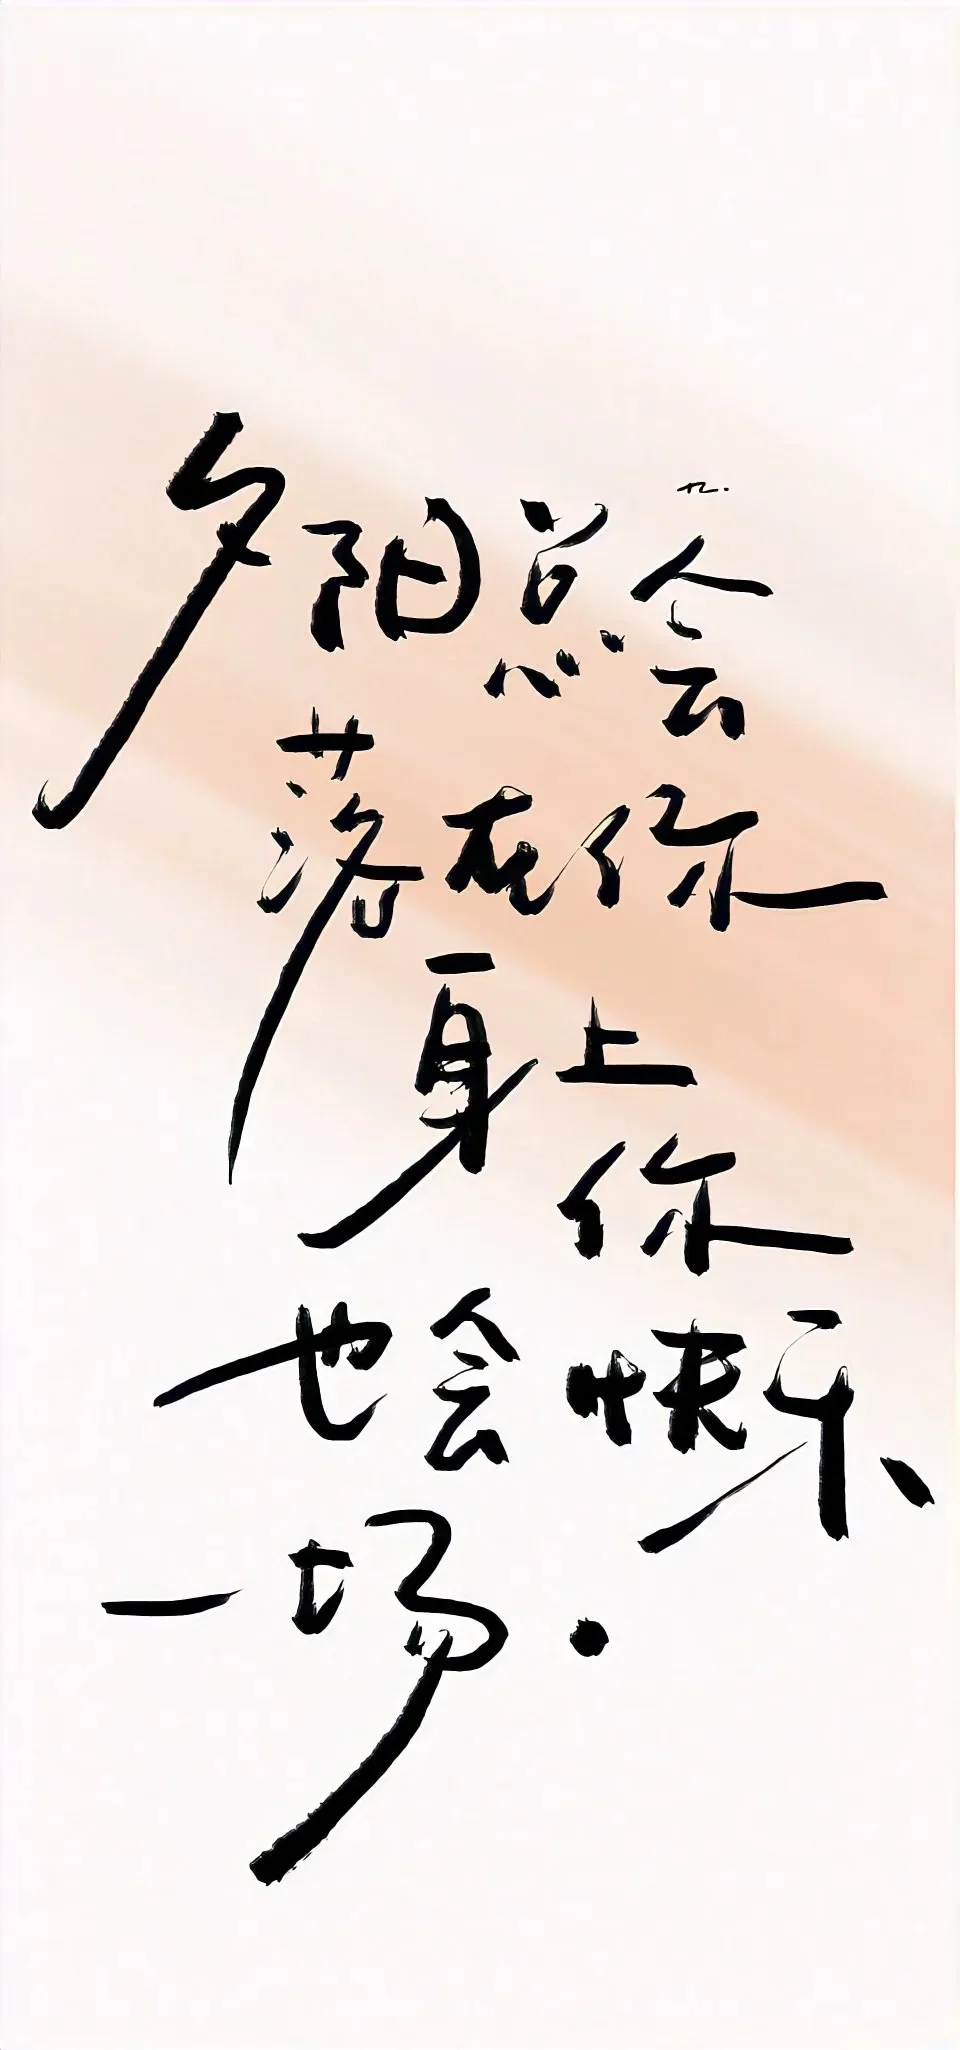 夕阳总会
落在你
身上
你
也会快乐
一场.